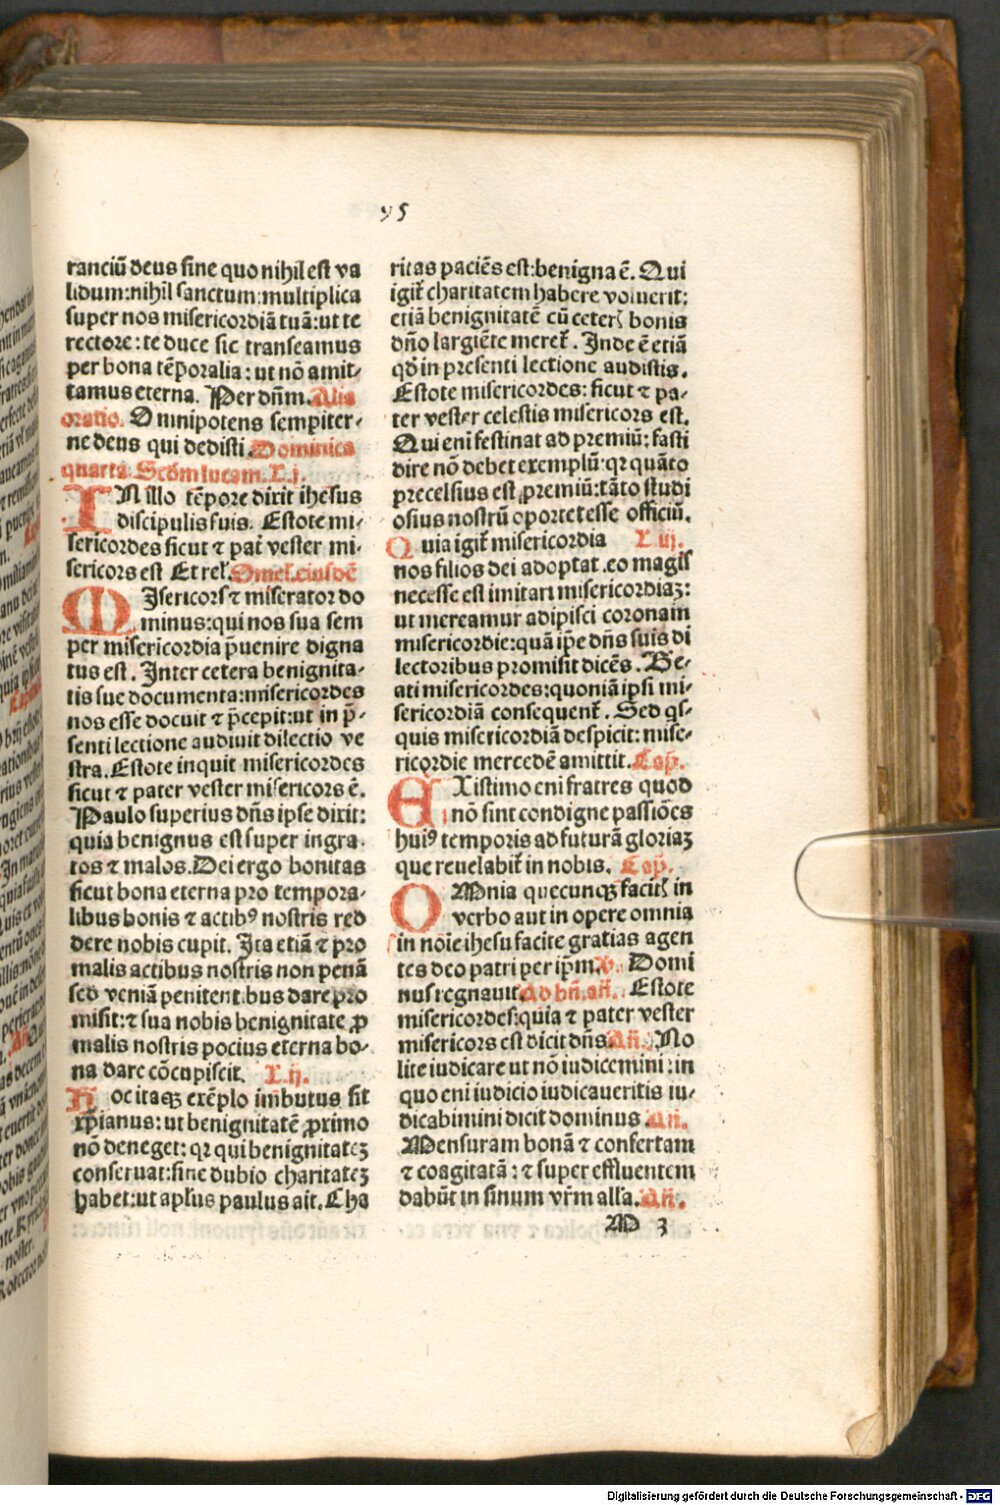 95
ranciū deus sine quo nihil est va
lidum:nihil sanctum:multiplica
super nos misericordiā tuā:ut te
rectore:te duce sic transeamus
per bona tēporalia:ut nō amit-
tamus eterna. Per dñm. Alia
oratio. Omnipotens sempiter-
ne deus qui dedisti. Dominica
quarta Scđm lucam. L.j.
IN illo tēpore dixit ihesus
discipulis suis. Estote mi-
sericordes sicut ⁊ pat̄ vester mi-
sericors est Et rel. Omel. eiusdē
MIsericors ⁊ miserator do
minus:qui nos sua sem
per misericordia p̄uenire digna
tus est. Inter cetera benignita-
tis sue documenta:misericordes
nos esse docuit ⁊ p̄cepit:ut in p̄-
senti lectione audiuit dilectio ve
stra. Estote inquit misericordes
sicut ⁊ pater vester misericors ē.
Paulo superius dñs ipse dixit:
quia benignus est super ingra-
tos ⁊ malos. Dei ergo bonitas
sicut bona eterna pro tempora-
libus bonis ⁊ actibꝰ nostris red
dere nobis cupit. Ita etiā ⁊ pro
malis actibus nostris non penā
sed veniā penitentibus dare pro
misit:⁊ sua nobis benignitate ꝓ
malis nostris pocius eterna bo-
na dare cōcupiscit. L.ij.
Hoc itaqꝫ exēplo imbutus sit
xp̄ianus:ut benignitatē ꝓximo
nō deneget:qꝛ qui benignitateꝫ
conseruat:sine dubio charitateꝫ
habet:ut apl̄us paulus ait. Cha
ritas paciēs est:benigna ē. Qui
igit̄ charitatem habere voluerit:
etiā benignitatē cū ceterꝭ bonis
dño largiēte meret̄. Inde ē etiā
qđ in presenti lectione audistis.
Estote misericordes:sicut ⁊ pa-
ter vester celestis misericors est.
Qui eni festinat ad premiū:fasti
dire nō debet exemplū:qꝛ quāto
precelsius est premiū:tāto studi
osius nostrū oportet esse officiū.
Quia igit̄ misericordia L.iij.
nos filios dei adoptat.eo magis
necesse est imitari misericordiaꝫ:
ut mereamur adipisci coronam
misericordie:quā ip̄e dñs suis di
lectoribus promisit dicēs. Be-
ati misericordes:quoniā ipsi mi-
sericordiā consequent̄. Sed qͥs-
quis misericordiā despicit:mise-
ricordie mercedē amittit. Cap̄.
EXistimo eni fratres quod
nō sint condigne passiōes
huiꝰ temporis ad futurā gloriaꝫ
que reuelabit̄ in nobis. Cap̄.
OMnia quecunqꝫ facitꝭ in
verbo aut in opere omnia
in noīe ihesu facite gratias agen
tes deo patri per ip̄m. V. Domi
nus regnauit. Ad bñ.añ. Estote
misericordes:quia ⁊ pater vester
misericors est dicit dñs. Añ. No
lite iudicare ut nō iudicemini:in
quo eni iudicio iudicaueritis iu-
dicabimini dicit dominus. Añ.
Mensuram bonā ⁊ confertam
⁊ coagitatā:⁊ super effluentem
dabūt in sinum vr̄m all'a. Añ.
M 3
Digitalisierung gefördert durch die Deutsche Forschungsgemeinschaft - DFG